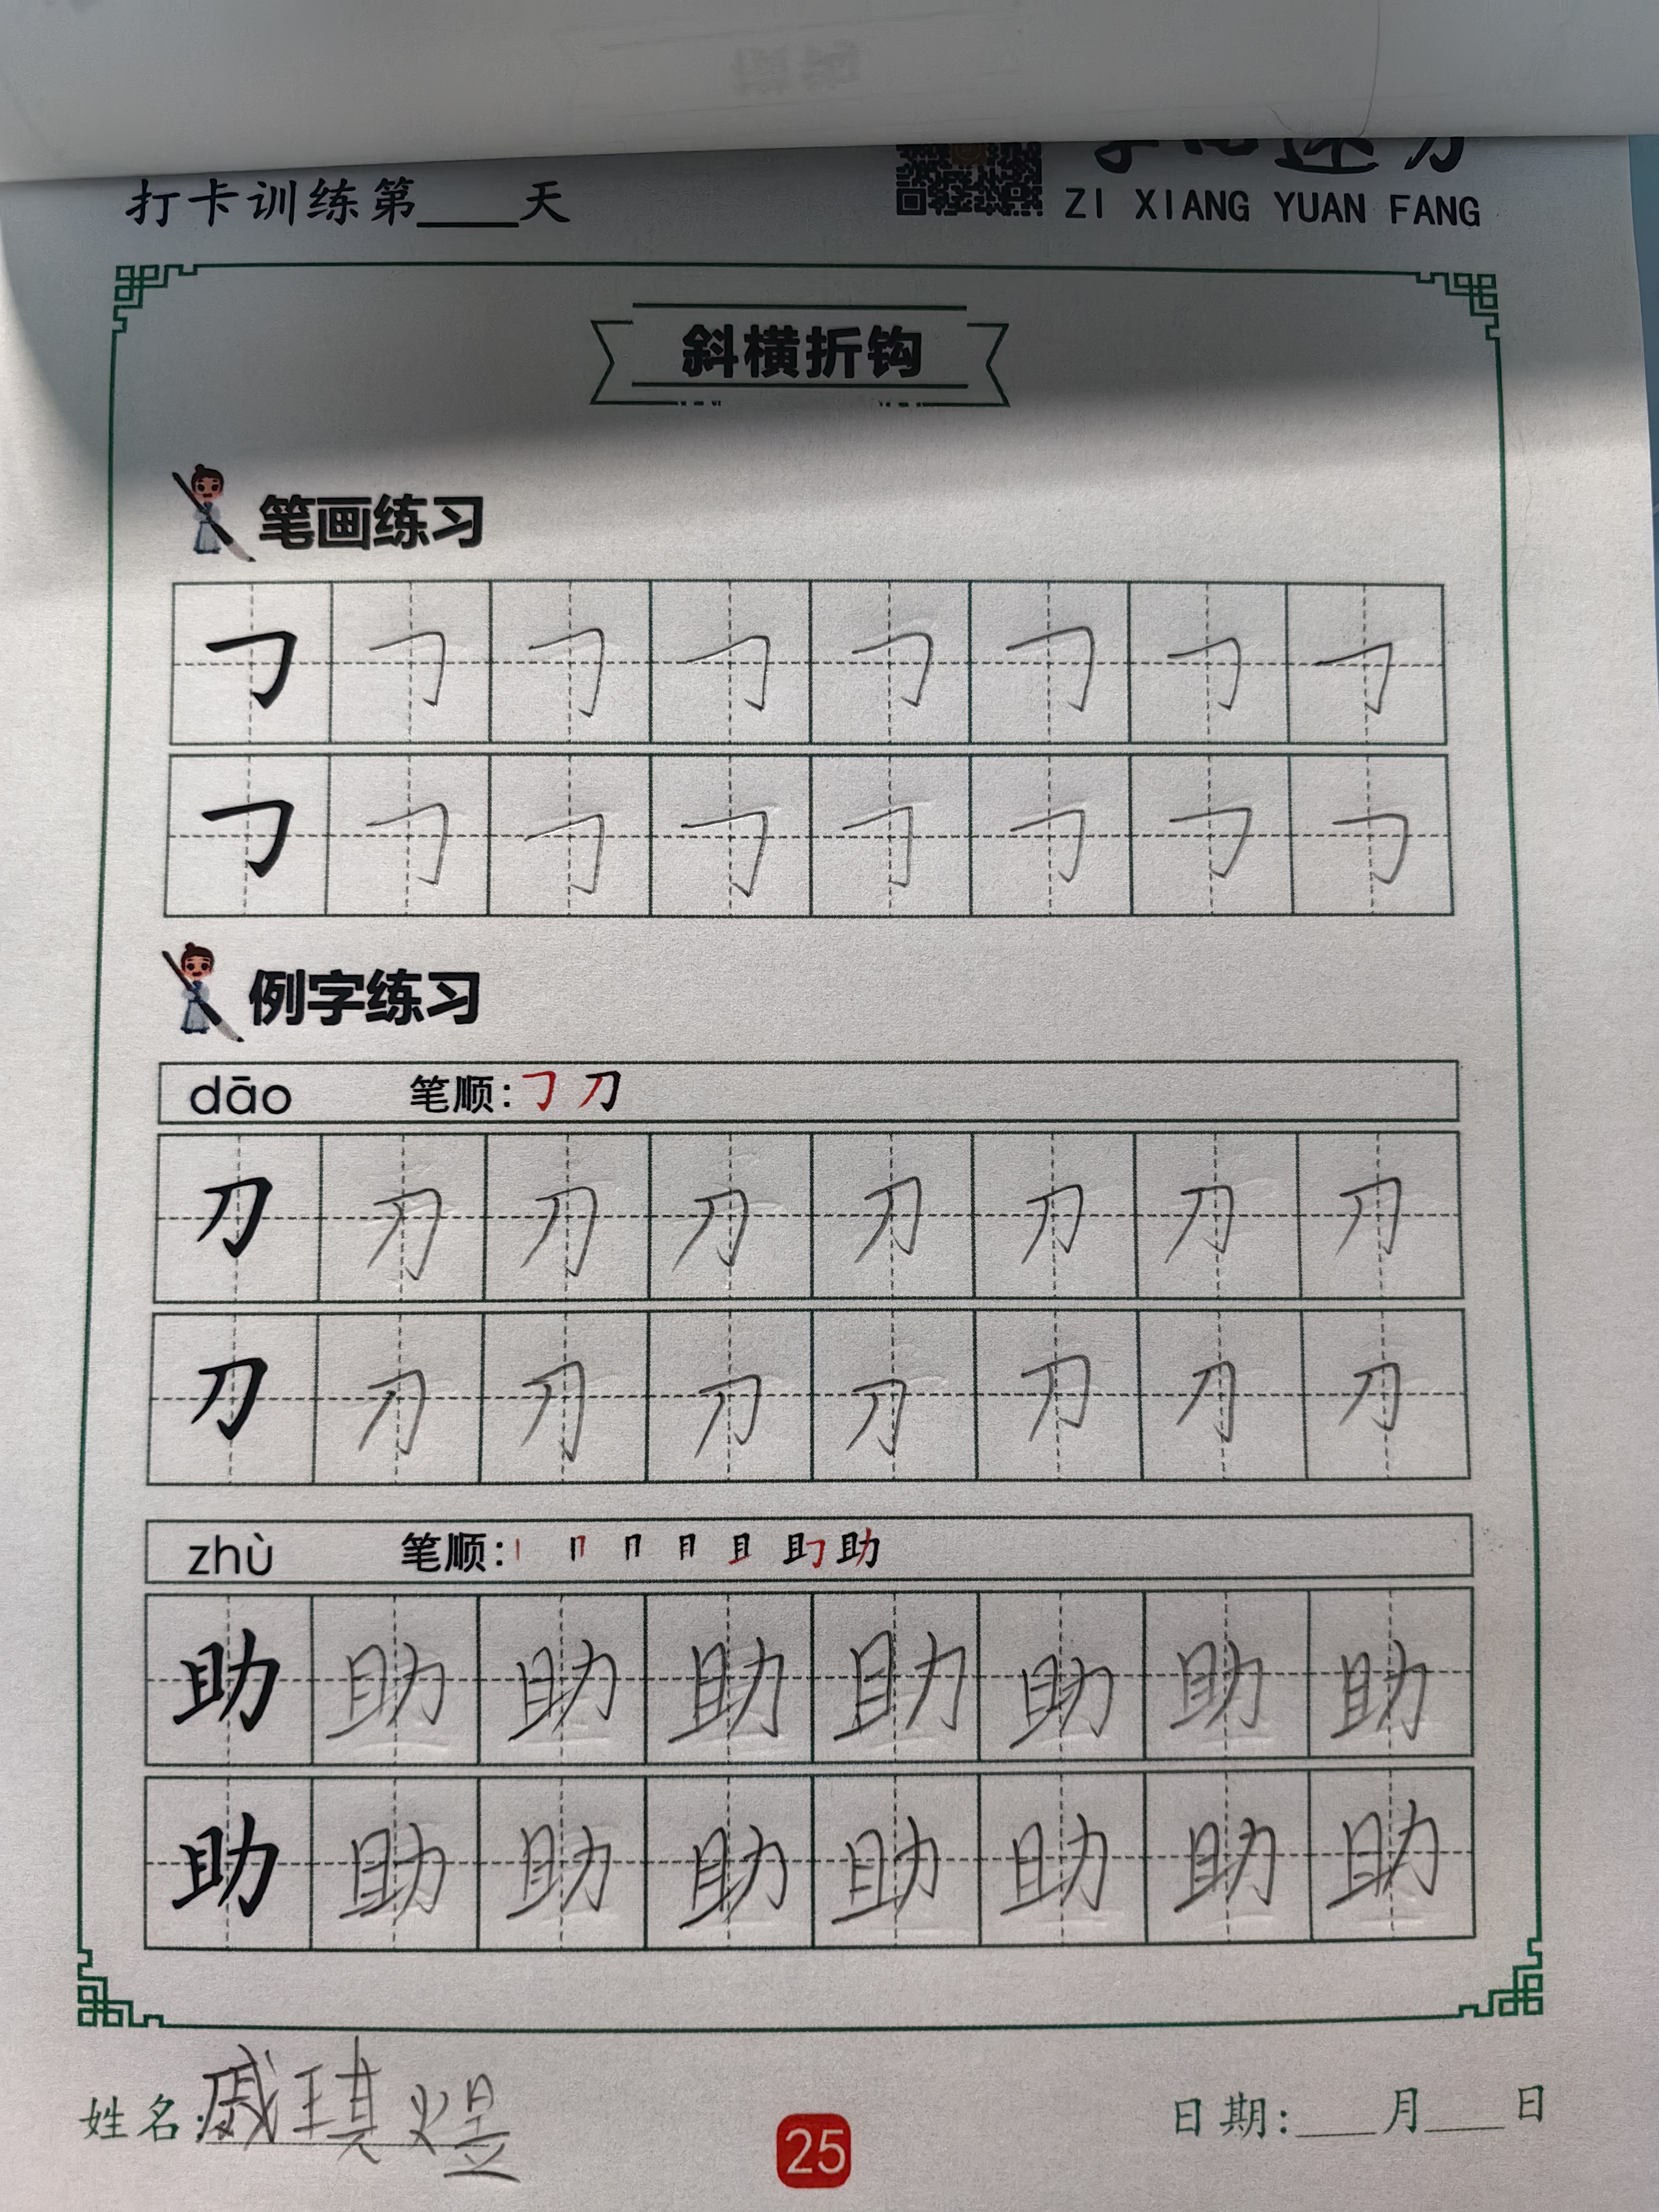 打卡训练第____天
ZI XIANG YUAN FANG
斜横折钩
笔画练习
㇆ ㇆ ㇆ ㇆ ㇆ ㇆ ㇆ ㇆
㇆ ㇆ ㇆ ㇆ ㇆ ㇆ ㇆ ㇆
例字练习
dāo 笔顺:㇆ 刀
刀 刀 刀 刀 刀 刀 刀 刀
刀 刀 刀 刀 刀 刀 刀 刀
zhù 笔顺:丨 冂 冂 月 且 助 助
助 助 助 助 助 助 助 助
助 助 助 助 助 助 助 助
姓名:戚琪煜
25
日期:___月___日